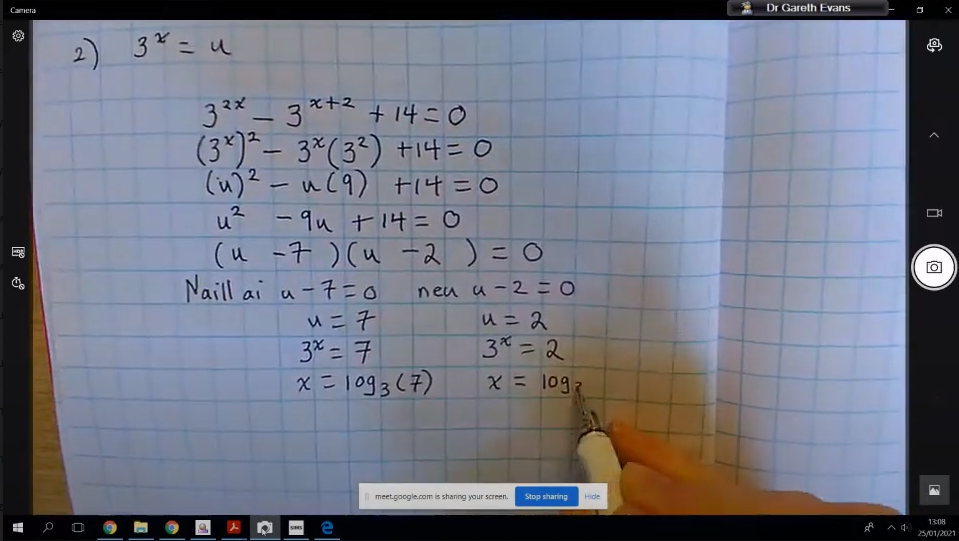 Camera
Dr Gareth Evans
2) 3^x = u
3^{2x} - 3^{x+2} + 14 = 0
(3^x)^2 - 3^x(3^2) + 14 = 0
(u)^2 - u(9) + 14 = 0
u^2 - 9u + 14 = 0
(u - 7)(u - 2) = 0
Naill ai u - 7 = 0 neu u - 2 = 0
u = 7 u = 2
3^x = 7 3^x = 2
x = log_3(7) x = log_3
meet.google.com is sharing your screen. Stop sharing Hide
SIMS
13:08
25/01/2021